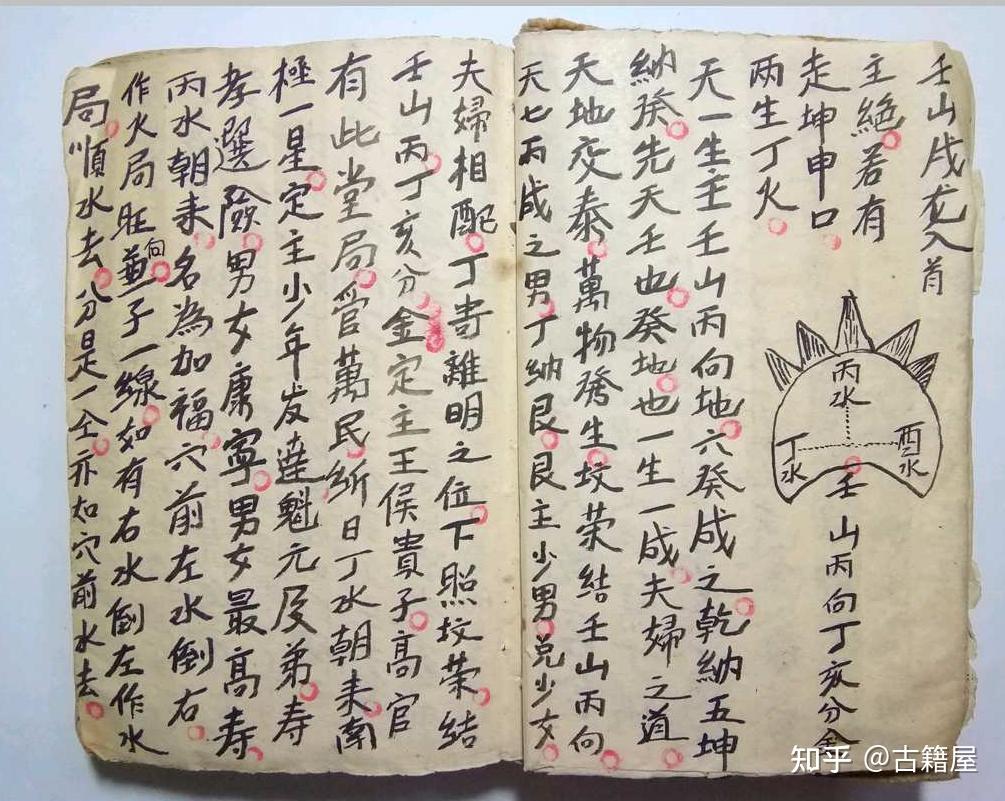 壬山戌龙入首
主絶若有
走坤申口
两生丁火
丙水
丁水
酉水
壬山丙向丁亥分金
天一生主壬山丙向地六癸成之乾納五坤
納癸先天壬也癸地也一生一成夫婦之道
天地交泰萬物發生坟荣結壬山丙向
天七丙成之男丁納艮艮主少男兑少女
夫婦相配丁寄離明之位下照坟荣結
壬山丙丁亥分金定主王侯貴子高官
有此堂局管萬民斫日丁水朝来南
極一星定主少年发達魁元及弟寿
孝選險男女康寧男女最高寿
丙水朝来名為加福穴前左水倒右
作火局旺向兼子一線如有右水倒左作水
局順水去分是一仝亦如穴前水去
知乎 @古籍屋